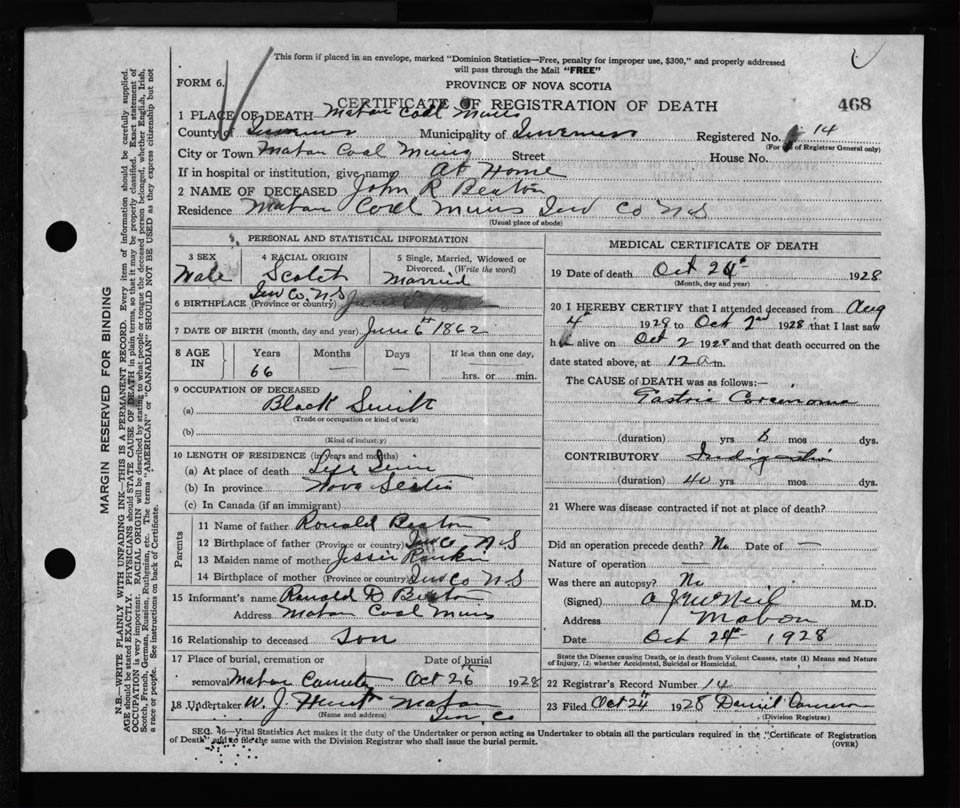 This form if placed in an envelope, marked "Dominion Statistics—Free, penalty for improper use, $300," and properly addressed
will pass through the Mail "FREE"
FORM 6.
PROVINCE OF NOVA SCOTIA
CERTIFICATE OF REGISTRATION OF DEATH
468
1 PLACE OF DEATH Mabou Coal Mines
County of Inverness Municipality of Inverness Registered No. 14
(For use of Registrar General only)
City or Town Mabou Coal Mines Street House No.
If in hospital or institution, give name At Home
2 NAME OF DECEASED John R Beaton
Residence Mabou Coal Mines Inv Co N S
(Usual place of abode)
PERSONAL AND STATISTICAL INFORMATION
3 SEX 4 RACIAL ORIGIN 5 Single, Married, Widowed or
Divorced. (Write the word)
Male Scotch Married
6 BIRTHPLACE (Province or country) Inv Co. N S
7 DATE OF BIRTH (month, day and year) June 6th 1862
8 AGE IN Years Months Days If less than one day
66 — — hrs. or min.
9 OCCUPATION OF DECEASED
(a) Black Smith
(Trade or occupation or kind of work)
(b)
(Kind of industry)
10 LENGTH OF RESIDENCE (in years and months)
(a) At place of death
(b) In province Nova Scotia
(c) In Canada (if an immigrant)
Parents
11 Name of father Ronald Beaton
12 Birthplace of father (Province or country) Inv Co N S
13 Maiden name of mother Jessie Rankin
14 Birthplace of mother (Province or country) Inv Co N S
15 Informant's name Ronald D Beaton
Address Mabou Coal Mines
16 Relationship to deceased Son
17 Place of burial, cremation or Date of burial
removal Mabou Oct 26th 1928
18 Undertaker W. J. Hunt Mabou
(Name and address) Inv. Co
MEDICAL CERTIFICATE OF DEATH
19 Date of death Oct 24th 1928
(Month, day and year)
20 I HEREBY CERTIFY that I attended deceased from Aug
4 1928 to Oct 2nd 1928 that I last saw
h alive on Oct 2 1928 and that death occurred on the
date stated above, at 12 a m.
The CAUSE of DEATH was as follows:—
Gastric Carcinoma
(duration) yrs mos dys.
CONTRIBUTORY Indigestion
(duration) 40 yrs mos. dys.
21 Where was disease contracted if not at place of death?
Did an operation precede death? No Date of —
Nature of operation —
Was there an autopsy? No
(Signed) A J McNeil M.D.
Address Mabou
Date Oct 24th 1928
State the Disease causing Death, or in death from Violent Causes, state (1) Means and Nature
of Injury, (2) whether Accidental, Suicidal or Homicidal.
22 Registrar's Record Number 14
23 Filed Oct 24th 1928 Daniel Cameron
(Division Registrar)
SEC. 46—Vital Statistics Act makes it the duty of the Undertaker or person acting as Undertaker to obtain all the particulars required in the "Certificate of Registration
of Death" and to file the same with the Division Registrar who shall issue the burial permit.
(OVER)
MARGIN RESERVED FOR BINDING
N.B.—WRITE PLAINLY WITH UNFADING INK—THIS IS A PERMANENT RECORD. Every item of information should be carefully supplied.
AGE should be stated EXACTLY. PHYSICIANS should STATE CAUSE OF DEATH in plain terms, so that it may be properly classified. Exact statement of
OCCUPATION is very important. RACIAL ORIGIN will be described by stating to what people or tongue the deceased person belonged, whether English, Irish,
Scotch, French, German, Russian, Ruthenian, etc. The terms "AMERICAN" or "CANADIAN" SHOULD NOT BE USED as they express citizenship but not
a race or people. See instructions on back of Certificate.